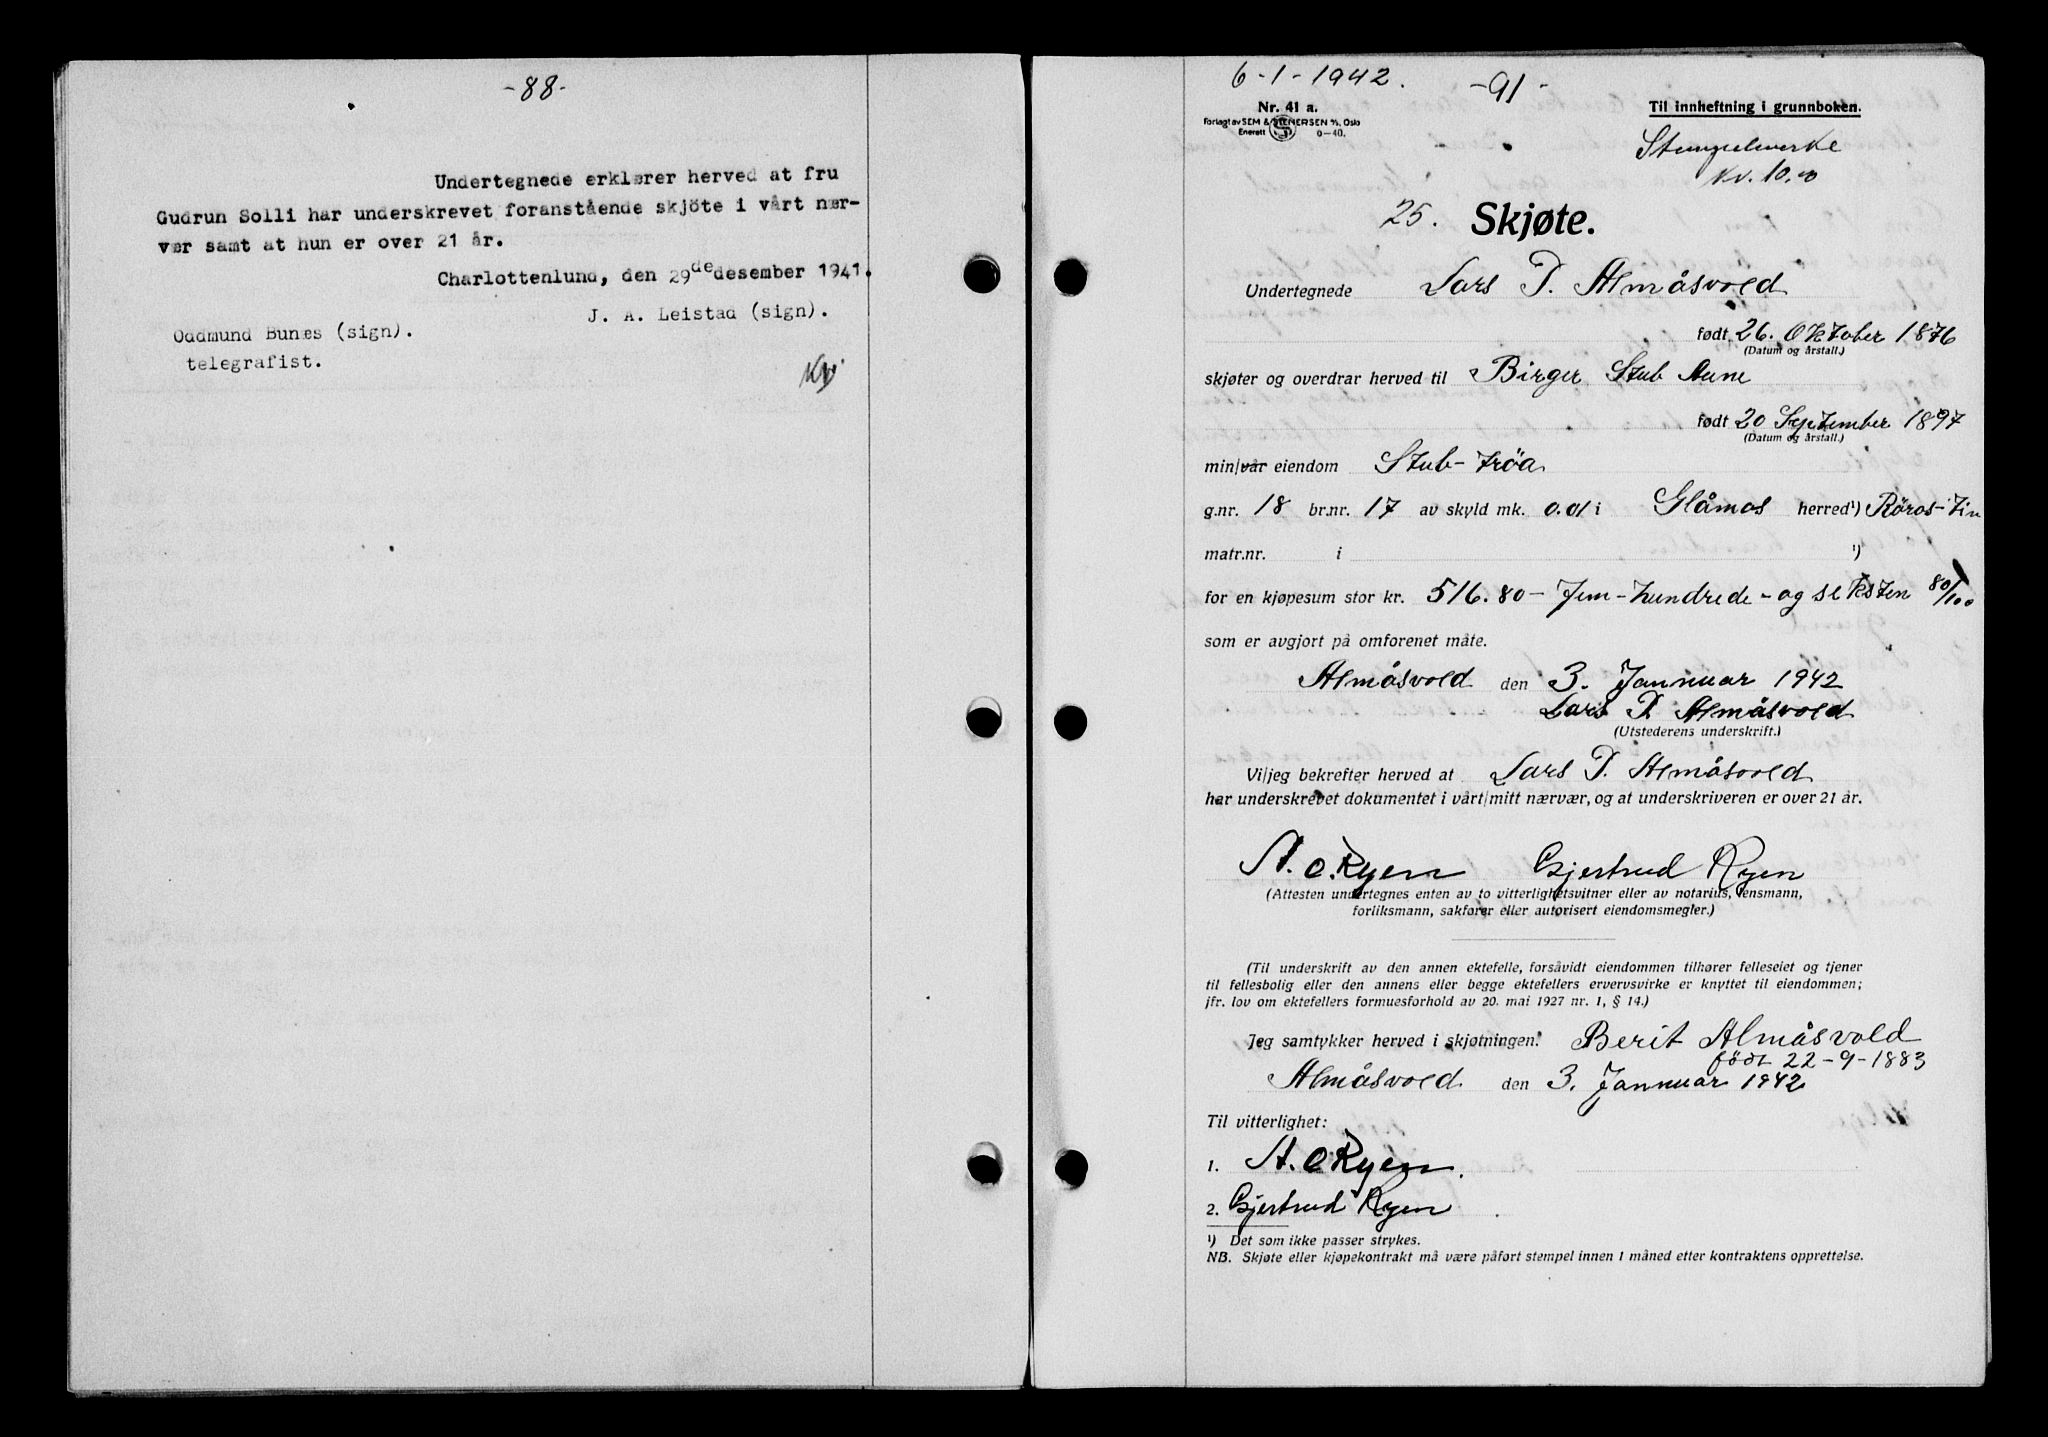 -88-
Undertegnede erklærer herved at fru
Gudrun Solli har underskrevet foranstående skjöte i vårt nær-
vær samt at hun er over 21 år.
Charlottenlund, den 29de desember 1941.
J. A. Leistad (sign).
Oddmund Bunæs (sign).
telegrafist.
6-1-1942.
-91-
Nr. 41 a.
Til innheftning i grunnboken.
Forlagt av SEM & STENERSEN A/S, Oslo
Enerett S 6-40.
Stempelmerke
Kr. 10.00
25. Skjøte.
Undertegnede Lars P. Almåsvold
født 26. Oktober 1876
(Datum og årstall.)
skjøter og overdrar herved til Birger Stub Aune
født 20 September 1897
(Datum og årstall.)
min/vår eiendom Stub-trøa
g.nr. 18 br.nr. 17 av skyld mk. 0.01 i Glåmos herred¹) Röros-Tin
matr.nr. i ¹)
for en kjøpesum stor kr. 516.80 - Fem-hundrede-og seksten 80/100
som er avgjort på omforenet måte.
Almåsvold den 3. Januar 1942
Lars P. Almåsvold
(Utstederens underskrift.)
Vi/jeg bekrefter herved at Lars P. Almåsvold
har underskrevet dokumentet i vårt/mitt nærvær, og at underskriveren er over 21 år.
A. O. Ryen Gjertrud Ryen
(Attesten undertegnes enten av to vitterlighetsvitner eller av notarius, lensmann,
forliksmann, sakfører eller autorisert eiendomsmegler.)
(Til underskrift av den annen ektefelle, forsåvidt eiendommen tilhører felleseiet og tjener
til fellesbolig eller den annens eller begge ektefellers ervervsvirke er knyttet til eiendommen;
jfr. lov om ektefellers formuesforhold av 20. mai 1927 nr. 1, § 14.)
Jeg samtykker herved i skjøtningen. Berit Almåsvold
født 22-9-1883
Almåsvold den 3. Januar 1942
Til vitterlighet:
1. A. O. Ryen.
2. Gjertrud Ryen
¹) Det som ikke passer strykes.
NB. Skjøte eller kjøpekontrakt må være påført stempel innen 1 måned etter kontraktens opprettelse.